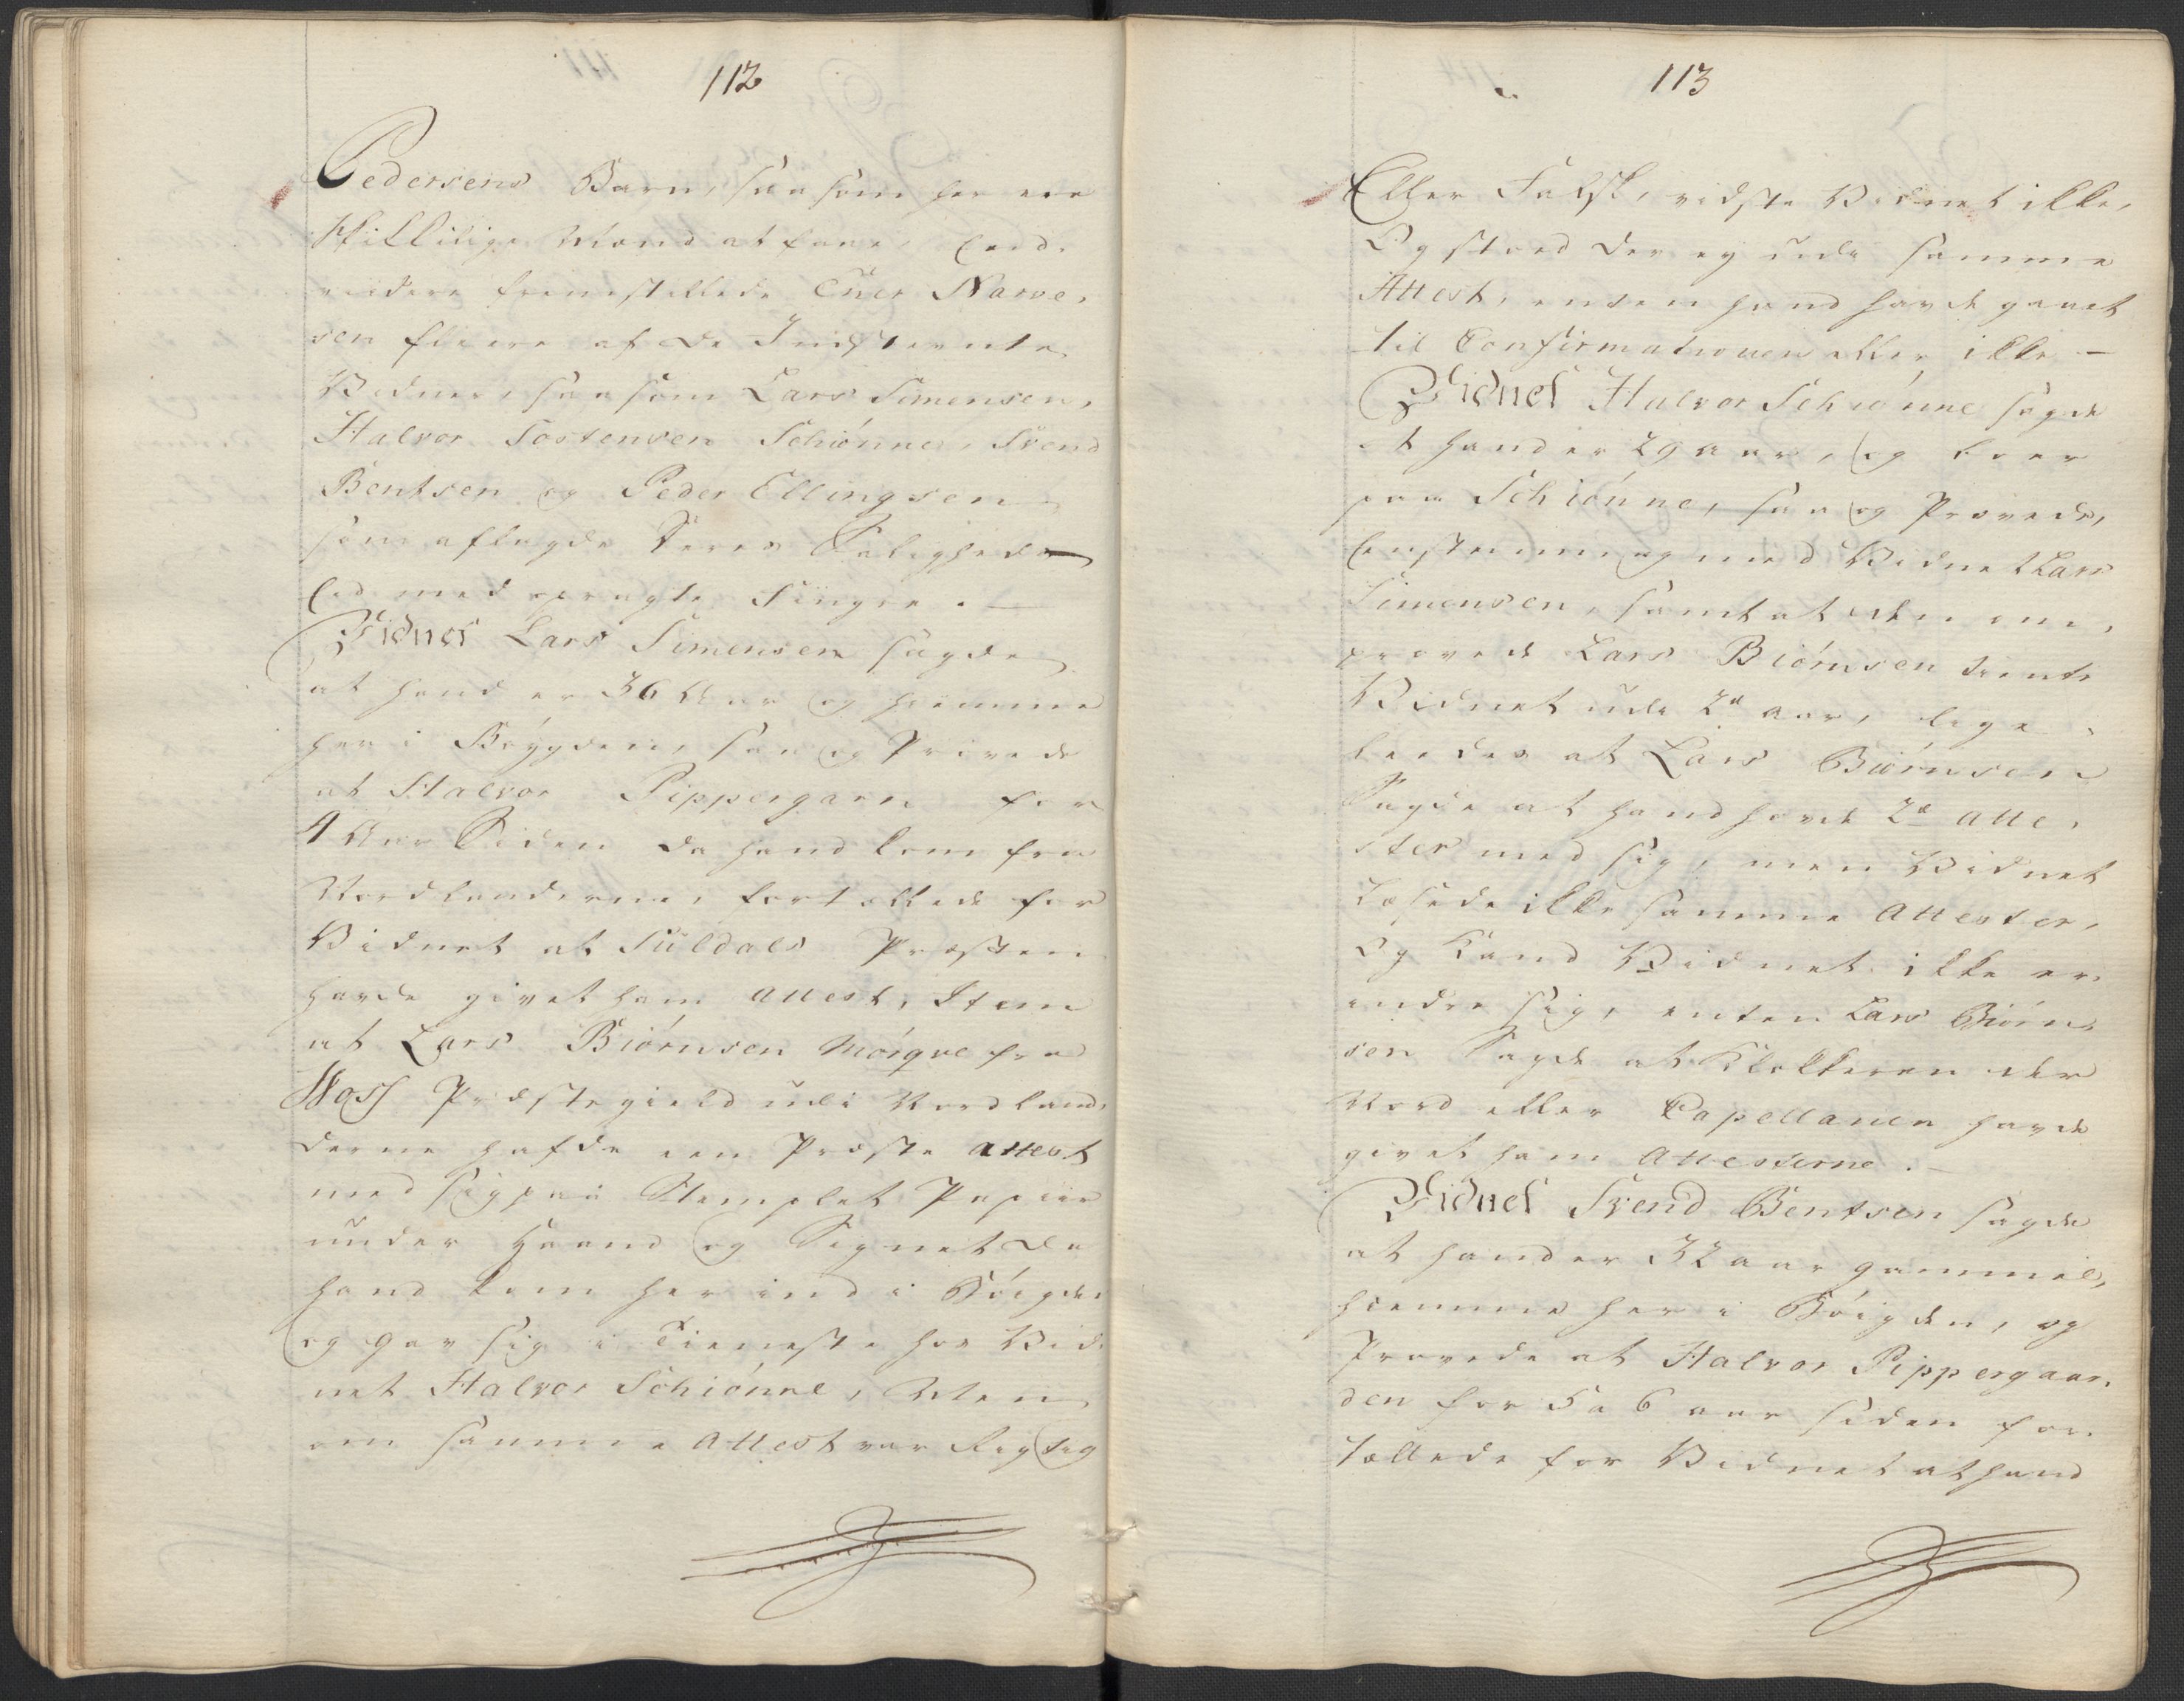 112
Pedersens Barn, saasom her ere
Skillilige Mænd at faae, End-
videre fremstillede Ener Narve-
sen fleere af de Indstevnte
Vidner, saasom Lars Simensen,
Halvor Tostensen Schiønne, Svend
Bentsen og Peder Ellingsen
som aflagde Deres Saligheds
Eed med opragte Fingre. —
Vidnet Lars Simensen sagde
at hand er 36 Aar og hiemme
her i Bøygden, saa og Provede
at Halvor Pippergaren for
4 Aar Siden da hand kom fra
Nordlanderne, fortællede for
Vidnet at Suldals Præsten
havde givet ham attest, Item
at Lars Biørnsen Møique fra
Woss Præstegield udi Nordland-
derne hafde een Præste attest
med sig paa Stemplet Papiir
under Haand og Segnet da
hand kom her ind i Bøigden
og gav sig i Tieneste hos Vid-
net Halvor Schiønne, Men
om samme Attest var Rigtig
113
Eller Falsk, vidste Vidnet ikke,
Og stoed der ey udi samme
Attest, enten hand havde gaaet
til Confirmationen eller ikke —
Vidnet Halvor Schiønne sagde
at hand er 29 aar, og boer
paa Schiønne, saa og Provede,
Eenstemmig med Vidnet Lars
Simensen, samt at den om-
provede Lars Biørnsen tiente
Vidnet udi 2de aar, lige-
leedes at Lars Biørnsen
Sagde at hand havde 2de atte-
ster med sig, men Vidnet
Læsede ikke samme Attester,
Og Kand Vidnet ikke er-
indre sig, enten Lars Biørn-
sen Sagde at Klokkeren der
Nord eller Capellanen havde
givet ham Attesterne. —
Vidnet Svend Bentsen sagde
at hand er 32 aar gammel,
hiemme her i Bøigden, og
Provede at Halvor Pippergaar-
den for 5 a 6 aar siden for-
tællede for Vidnet at hand